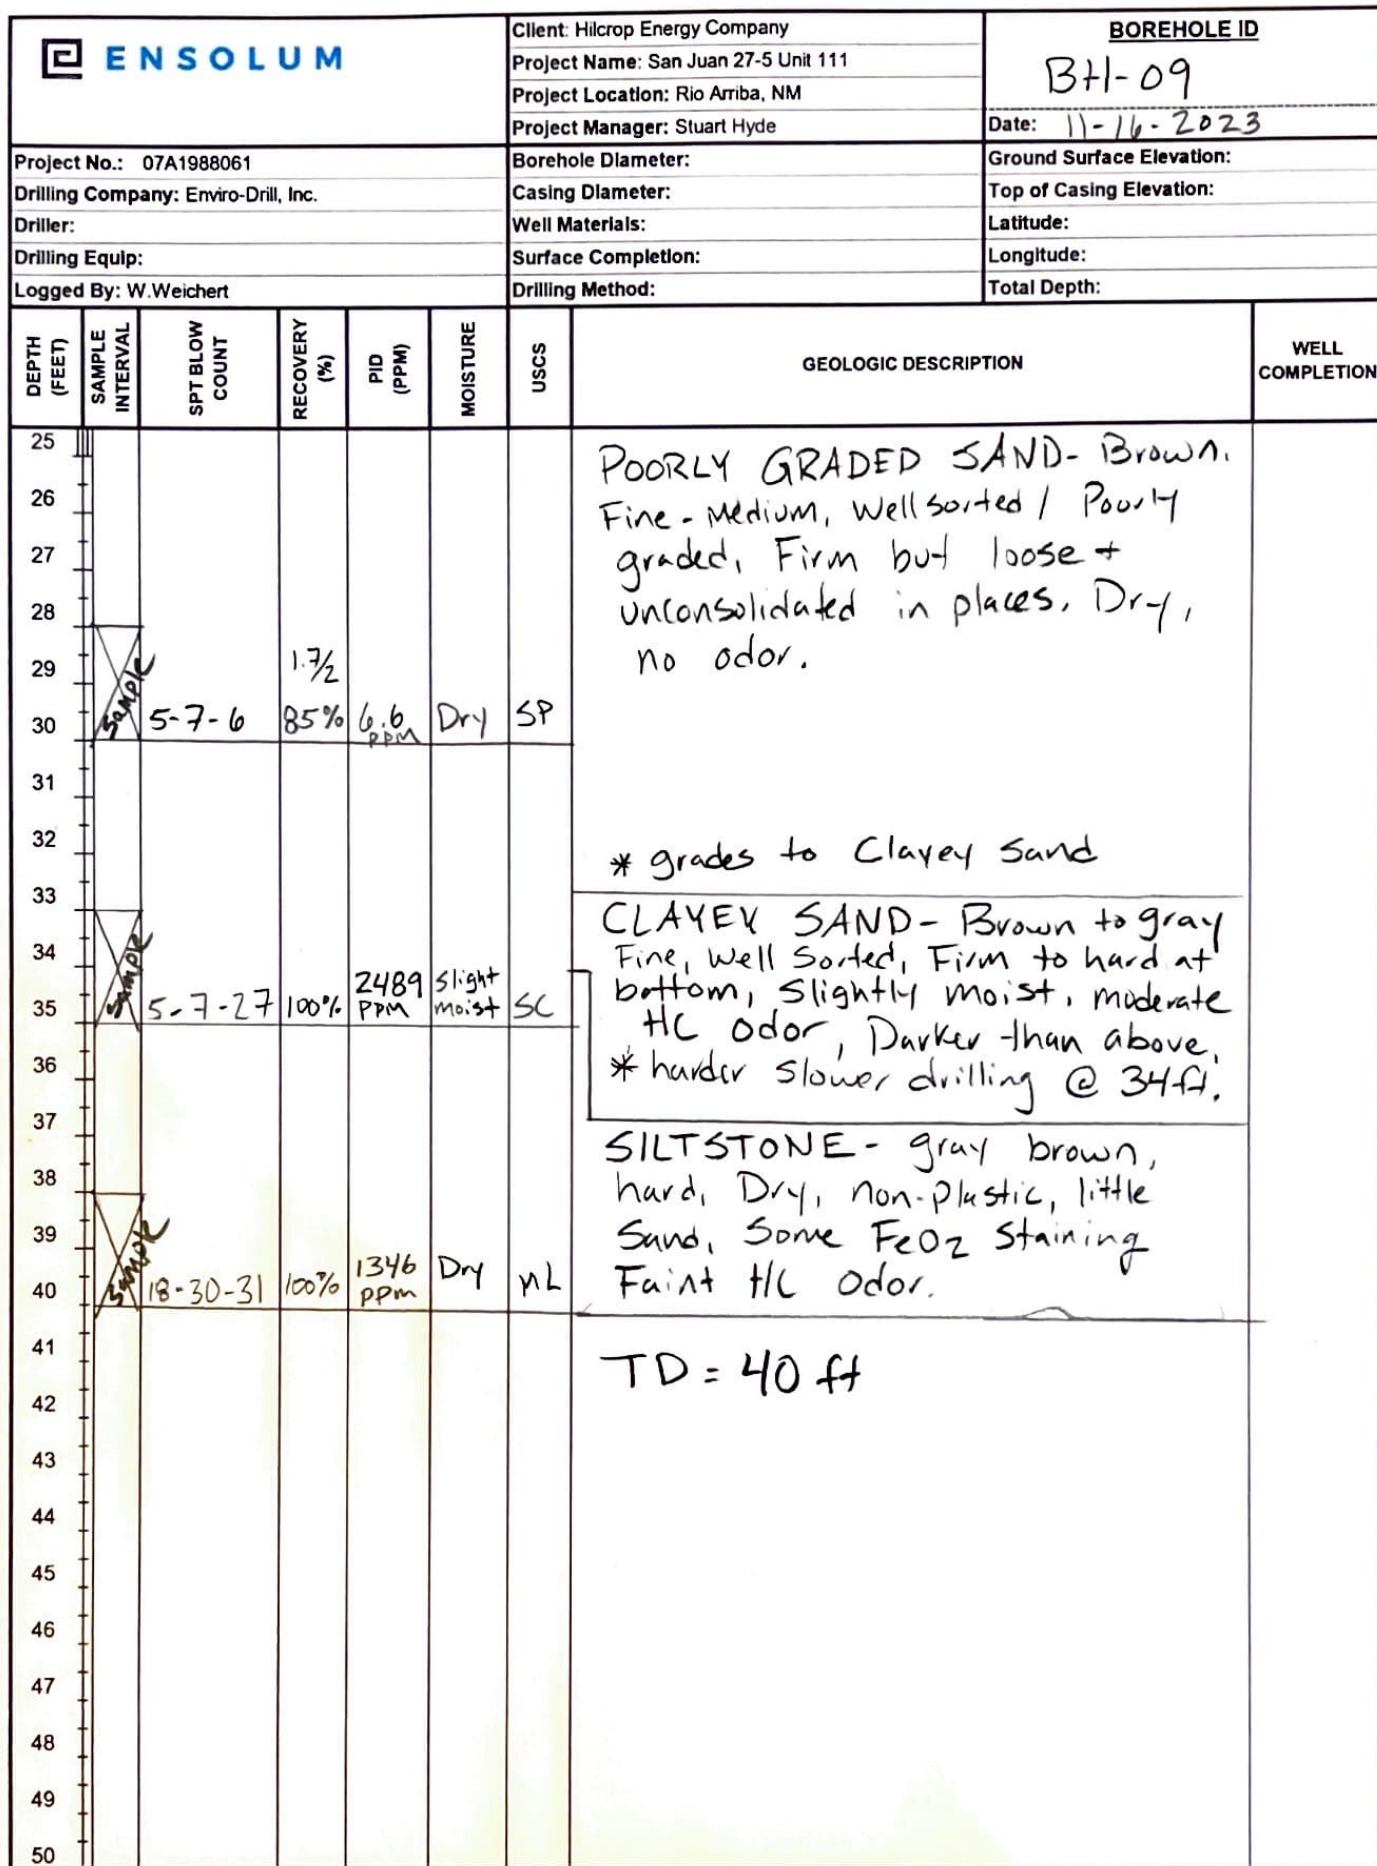 ENSOLUM
Client: Hilcrop Energy Company
Project Name: San Juan 27-5 Unit 111
Project Location: Rio Arriba, NM
Project Manager: Stuart Hyde
BOREHOLE ID
BH-09
Date: 11-16-2023
Project No.: 07A1988061
Drilling Company: Enviro-Drill, Inc.
Driller:
Drilling Equip:
Logged By: W.Weichert
Borehole Diameter:
Casing Diameter:
Well Materials:
Surface Completion:
Drilling Method:
Ground Surface Elevation:
Top of Casing Elevation:
Latitude:
Longitude:
Total Depth:
DEPTH
(FEET)
SAMPLE
INTERVAL
SPT BLOW
COUNT
RECOVERY
(%)
PID
(PPM)
MOISTURE
USCS
GEOLOGIC DESCRIPTION
WELL
COMPLETION
25
POORLY GRADED SAND- Brown.
26
Fine-Medium, Well sorted / Poorly
27
graded, Firm but loose +
28
unconsolidated in places. Dry,
29
Sample
1.7/2
no odor.
30
5-7-6
85%
6.6
ppm
Dry
SP
31
32
* grades to Clayey Sand
33
CLAYEY SAND- Brown to gray
34
Sample
Fine, Well Sorted, Firm to hard at
bottom, Slightly moist, moderate
35
5-7-27
100%
2489
PPM
slight
moist
SC
HC odor, Darker than above.
36
* harder slower drilling @ 34ft.
37
SILTSTONE- gray brown,
38
hard, Dry, non-plastic, little
39
Sample
Sand, Some FeO2 Staining
40
18-30-31
100%
1346
ppm
Dry
ML
Faint HC Odor.
41
TD = 40 ft
42
43
44
45
46
47
48
49
50